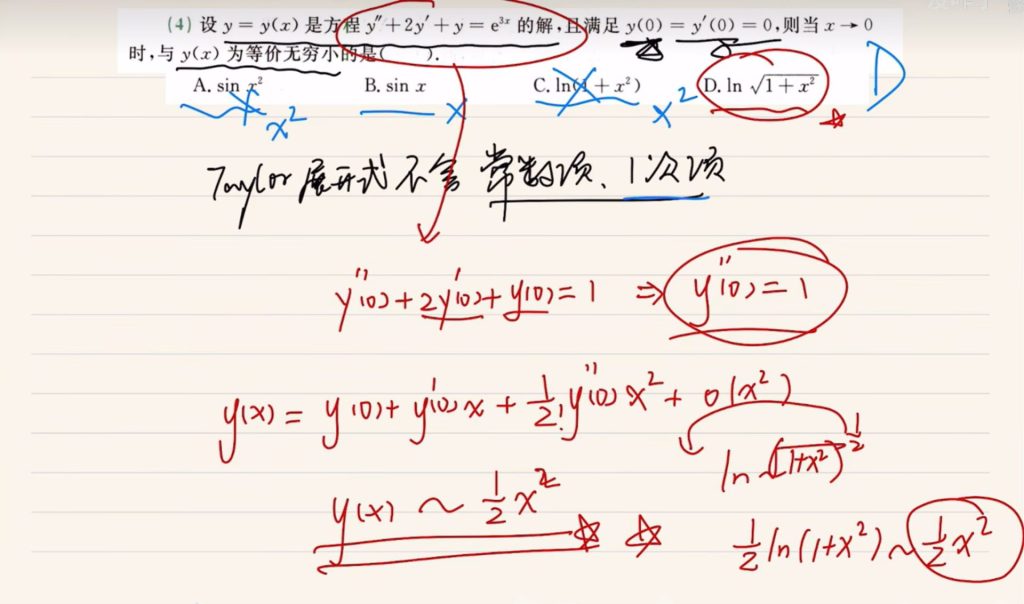 (4) 设 y = y(x) 是方程 y″ + 2y′ + y = e^{3x} 的解,且满足 y(0) = y′(0) = 0,则当 x → 0
时,与 y(x) 为等价无穷小的是(  ).
A. sin x² B. sin x C. ln(1 + x²) D. ln √(1 + x²) D
x² x x²
Taylor 展开式不含 常数项、1次项
y″(0) + 2y′(0) + y(0) = 1 ⇒ y″(0) = 1
y(x) = y(0) + y′(0)x + 1/2! y″(0)x² + o(x²)
ln √(1+x²) ^{1/2}
y(x) ~ 1/2 x²
1/2 ln(1+x²) ~ 1/2 x²